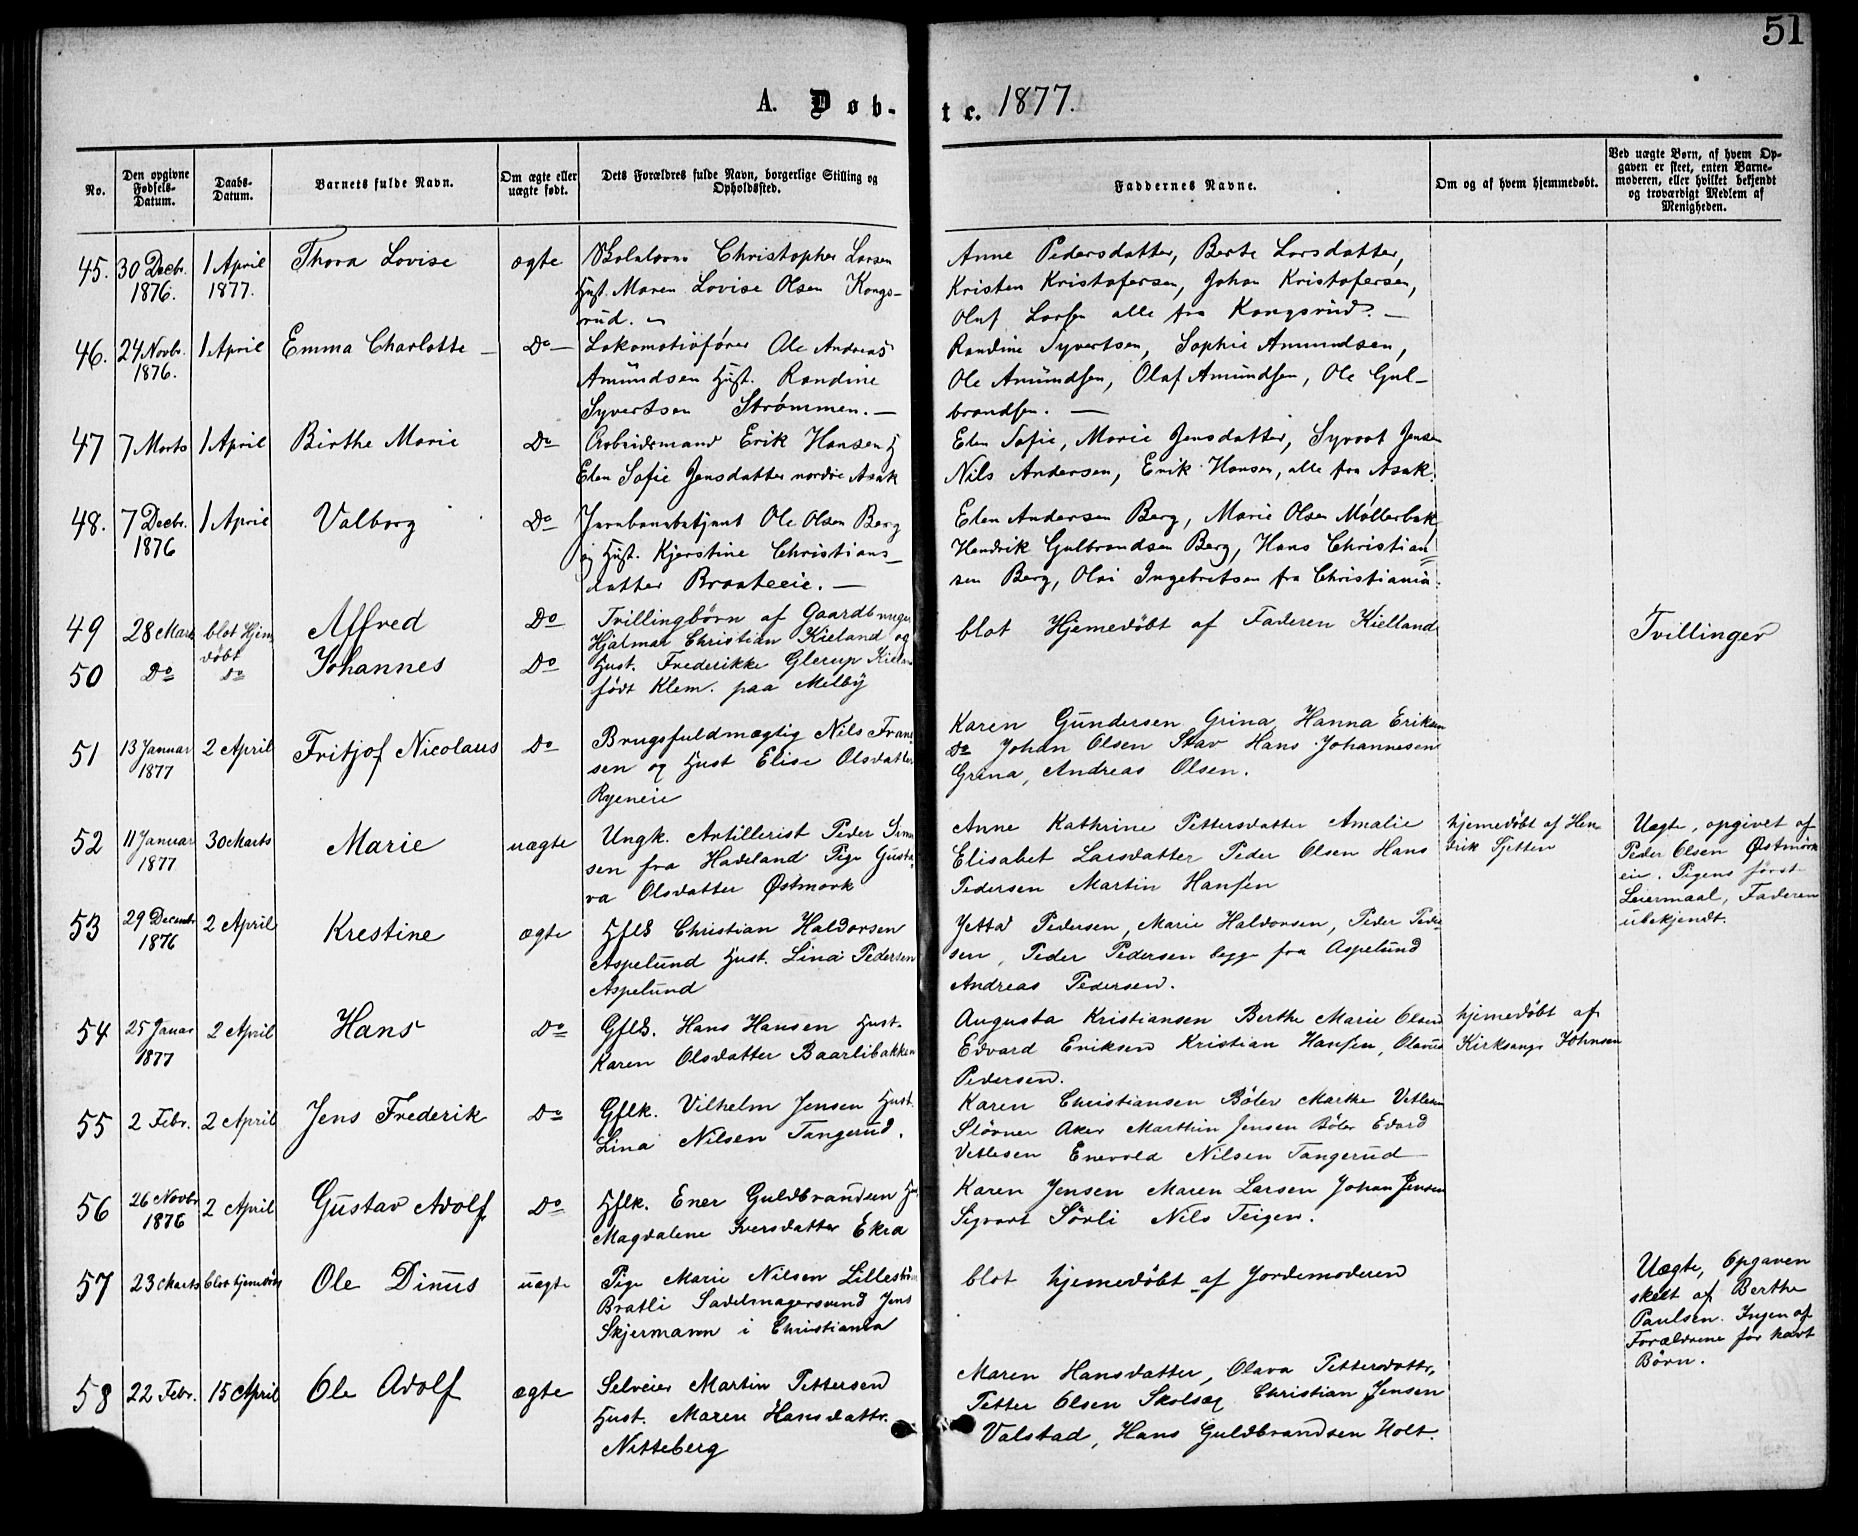 51
A. Døb-
te. 1877.
No.
Den opgivne Fødsels-Datum.
Daabs-Datum.
Barnets fulde Navn.
Om ægte eller uægte født.
Dets Forældres fulde Navn, borgerlige Stilling og Opholdssted.
Faddernes Navne.
Om og af hvem hjemmedøbt.
Ved uægte Børn, af hvem Op-
gaven er skeet, enten Barne-
moderen, eller hvilket bekjendt
og troværdigt Medlem af
Menigheden.
45. 30 Decbr. 1876. 1 April 1877. Thora Lovise ægte
Christopher Larsen
Hust. Maren Lovise Olsen Kongs-
rud.
Anne Pedersdatter, Berte Larsdatter,
Kristen Kristofersen, Johan Kristofersen,
Oluf Larsen alle fra Kongsrud. —
46. 24 Novbr. 1876. 1 April Emma Charlotte — Do —
Lokomotivfører Ole Andreas
Amundsen Hust. Randine
Syvertsen Strømmen. —
Randine Syvertsen, Sophie Amundsen,
Ole Amundsen, Olaf Amundsen, Ole Gul-
brandsen. —
47 7 Marts 1 April Birthe Marie Do
Arbeidsmand Erik Hansen H
Elen Sofie Jensdatter nordre Asak
Elen Sofie, Marie Jensdatter, Syvert Jensen
Nils Andersen, Erik Hansen, alle fra Asak.
48. 7 Decbr. 1876 1 April Valborg Do
Jernbanebetjent Ole Olsen Berg
og Hust. Kjerstine Christians-
datter Braateeie. —
Elen Andersen Berg, Marie Olsen Møllerbak
Hendrik Gulbrandsen Berg, Hans Christian-
sen Berg, Olai Ingebretsen fra Christiania.
49 28 Mars blot Hjem døbt Alfred Do
Tvillingbørn af Gaardbruger
Hjalmar Christian Kieland og
blot Hjemedøbt af Faderen Kielland
Tvillinger
50 Do Do Johannes Do
Hust. Frederikke Glerup Kieland
født Klem. paa Melby
51 13 Januar 1877 2 April Fritjof Nicolaus Do
Brugsfuldmægtig Nils Fran
sen og Hust Elise Olsdatter
Ryeneie
Karen Gundersen Grina Hanna Eriksen
Do Johan Olsen Stav Hans Johannesen
Grina, Andreas Olsen.
52 11 Januar 1877 30 Marts Marie uægte
Ungk. Artillerist Peder Simen
sen fra Hadeland Pige Gusta
va Olsdatter Østmork
Anne Kathrine Pettersdatter Amalie
Elisabet Larsdatter Peder Olsen Hans
Pedersen Martin Hansen
hjemedøbt af Hen-
drik Sjetten
Uægte, opgivet af
Peder Olsen Østmork
eie. Pigens først
Leiermaal, Faderen
ubekjendt.
53 29 Decembr 1876 2 April Krestine ægte
Hflk Christian Haldorsen
Aspelund Hust. Lina Pedersen
Aspelund
Jetta Pedersen, Marie Haldorsen, Peder Peder
sen, Peder Pedersen begge fra Aspelund
Andreas Pedersen.
54 25 Januar 1877 2 April Hans Do
Gflk. Hans Hansen Hust.
Karen Olsdatter Baarlibakken
Augusta Kristiansen Berthe Marie Olsen
Edvard Eriksen Kristian Hansen, Olavus
Pedersen.
hjemedøbt af
Kirksang. Johnsen
55 2 Febr. 2 April Jens Frederik Do
Gflk. Vilhelm Jensen Hust.
Lina Nilsen Tangerud.
Karen Christiansen Bøler Marthe Vetlesen
Støvner Aker Marthin Jensen Bøler Edvard
Vetlesen Enevold Nilsen Tangerud
56 26 Novbr 1876 2 April Gustav Adolf Do
Hflk. Ener Guldbrandsen Hu
Magdalene Iversdatter Ekra
Karen Jensen Maren Larsen Johan Jensen
Sigvart Sørli Nils Teigen.
57 23 Marts blot hjemdøbt Ole Dinus uægte
Pige Marie Nilsen Lillestrøm
Bratli Sadelmagersvend Jens
Skjermann i Christiania
blot hjemedøbt af Jordemoderen
Uægte, Opgaven
skeet af Berthe
Paulsen. Ingen af
Forældrene før havt
Børn.
58 22 Febr. 15 April Ole Adolf ægte
Selveier Martin Pettersen
Hust. Maren Hansdattr.
Nitteberg
Maren Hansdatter, Olava Pettersdattr,
Petter Olsen Christian Jensen
Valstad, Hans Guldbrandsen Holt.